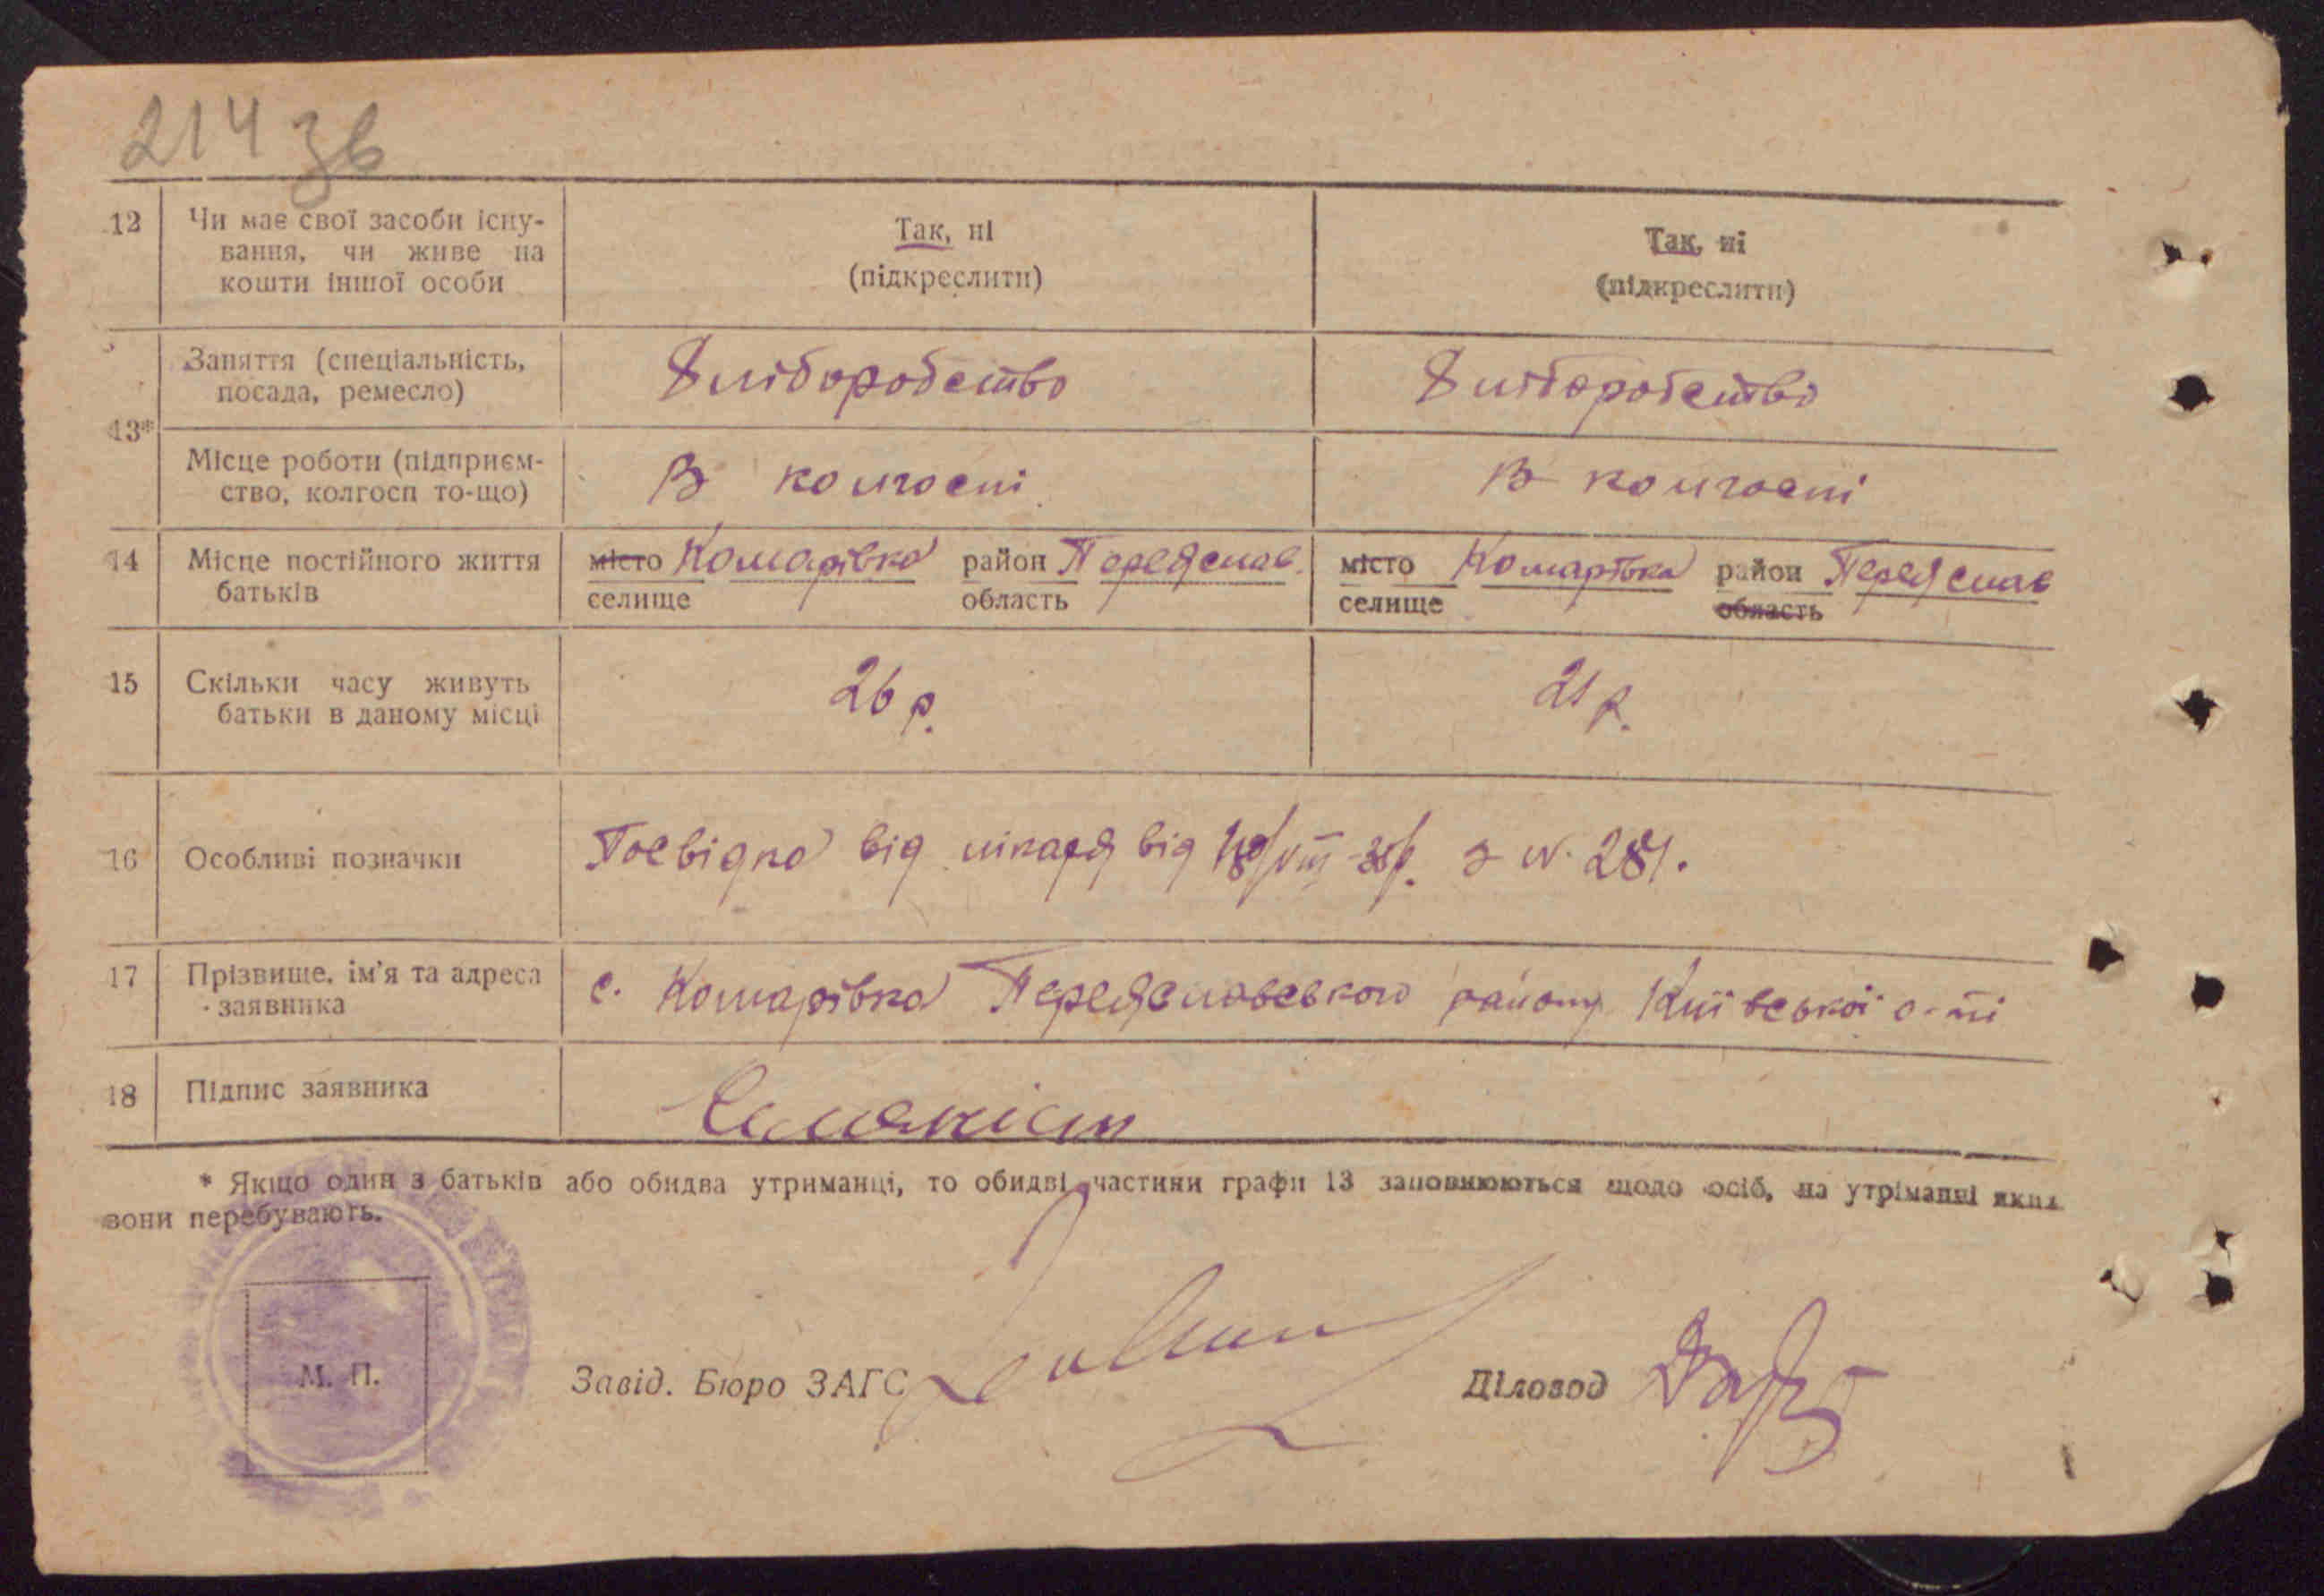 214 зв
12 Чи має свої засоби існу- Так, ні Так, ні
вання, чи живе на (підкреслити) (підкреслити)
кошти іншої особи
13* Заняття (спеціальність, Хліборобство Хліборобство
посада, ремесло)
Місце роботи (підприєм- В колгоспі В колгоспі
ство, колгосп то-що)
14 Місце постійного життя місто Комарівка район Переяслав. місто Комарівка район Переяслав
батьків селище область селище область
15 Скільки часу живуть 26 р. 21 р.
батьки в даному місці
16 Особливі позначки Посвідка від лікаря від з №
17 Прізвище, ім'я та адреса с. Комарівка Переяславського району Київської о-ті
заявника
18 Підпис заявника
* Якщо один з батьків або обидва утриманці, то обидві частини графи 13 заповнюються щодо осіб, на утріманні яких
вони перебувають.
М. П. Завід. Бюро ЗАГС Діловод